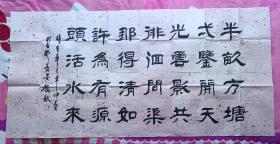 半畝方塘
弌鑒開天
光雲影共
徘徊問渠
那得清如
許為有源
頭活水來